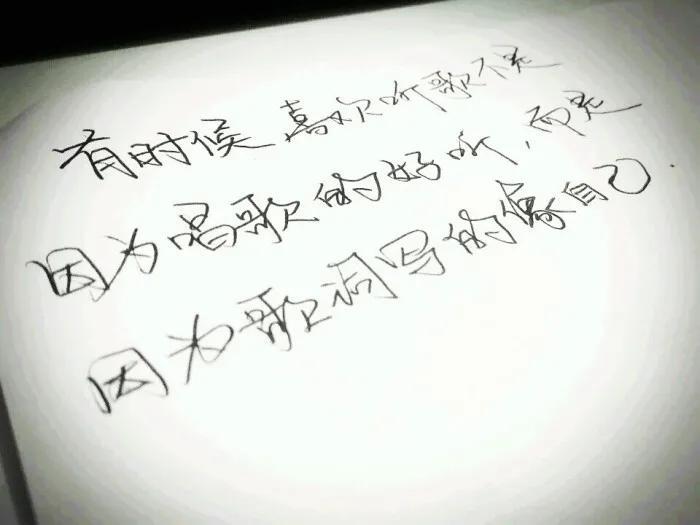 有时候 喜欢听歌不是
因为唱歌的好听，而是
因为歌词写的像自己.